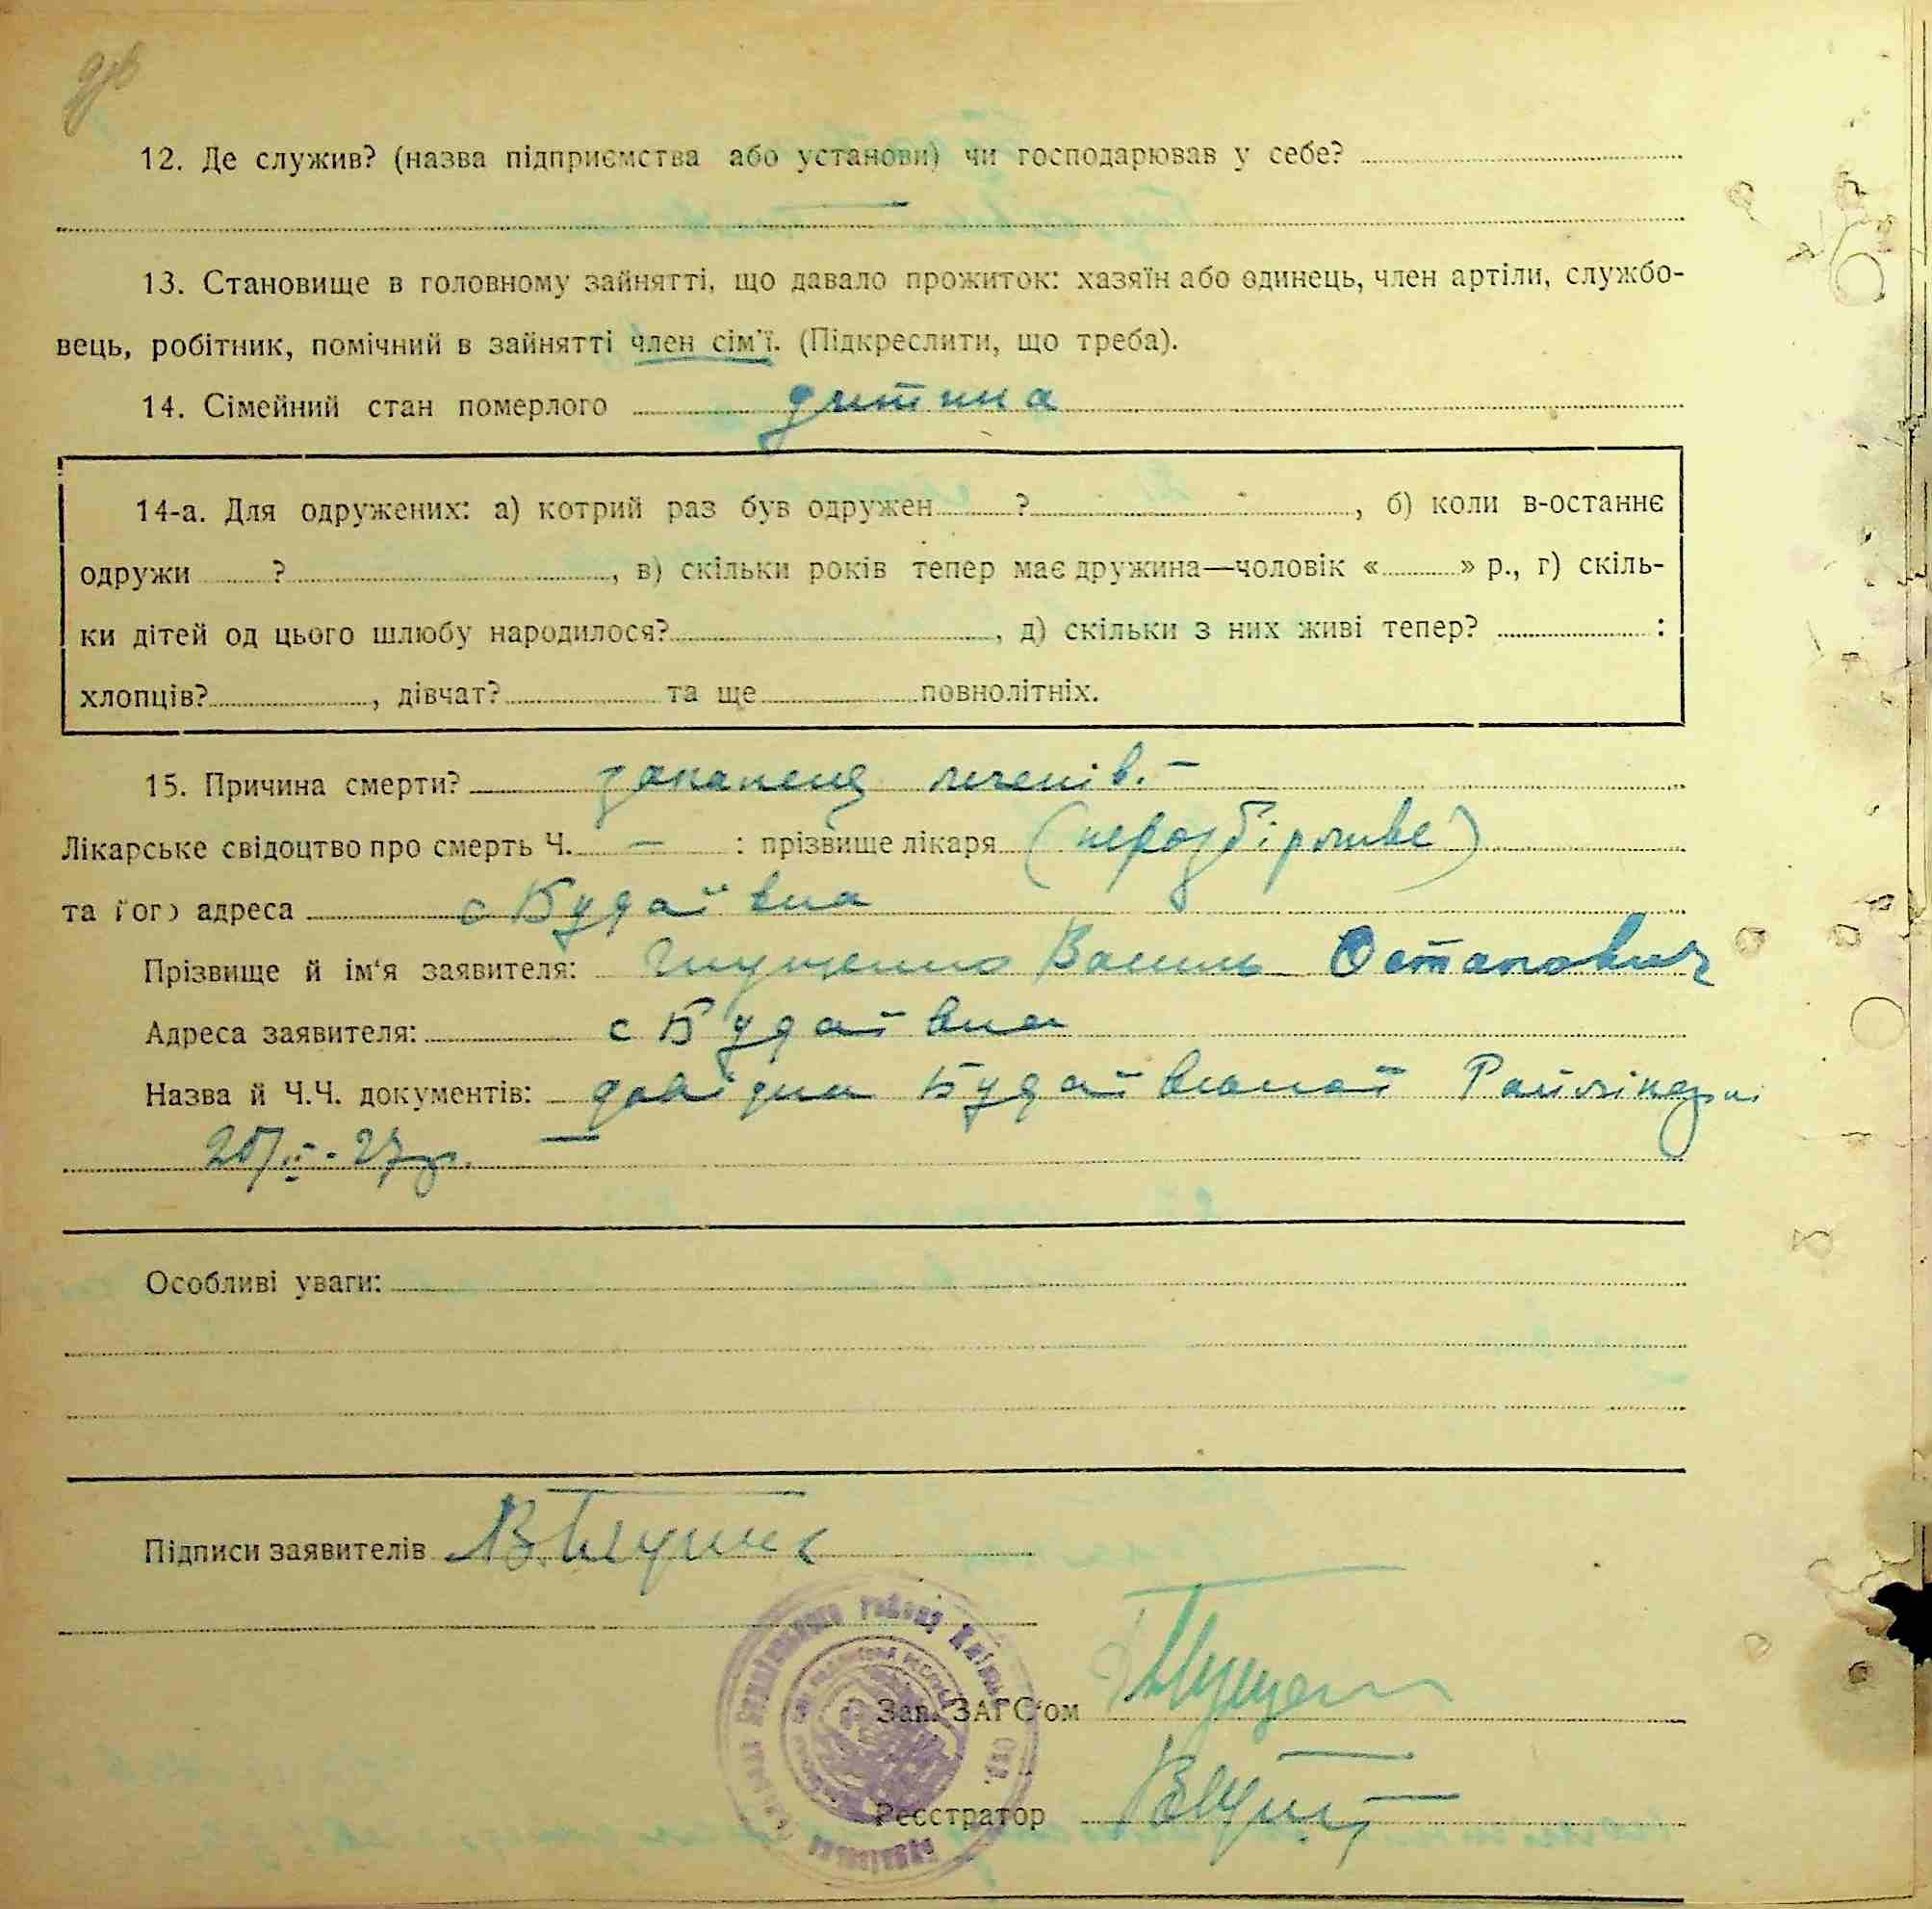 12. Де служив? (назва підприємства або установи) чи господарював у себе?
13. Становище в головному зайнятті, що давало прожиток: хазяїн або одинець, член артіли, службо-
вець, робітник, помічний в зайнятті член сім'ї. (Підкреслити, що треба).
14. Сімейний стан померлого дитина
14-а. Для одружених: а) котрий раз був одружен ? , б) коли в-останнє
одружи ? , в) скільки років тепер має дружина—чоловік « » р., г) скіль-
ки дітей од цього шлюбу народилося? , д) скільки з них живі тепер? :
хлопців? , дівчат? та ще повнолітніх.
15. Причина смерти? легенів. –
Лікарське свідоцтво про смерть Ч. — : прізвище лікаря (нерозбірливе)
та його адреса с Будаївка
Прізвище й ім'я заявителя: Василь Остапович
Адреса заявителя: с Будаївка
Назва й Ч.Ч. документів: довідка Будаївської Райлікарні
Особливі уваги:
Підписи заявителів
Зав. ЗАГС'ом
Реєстратор